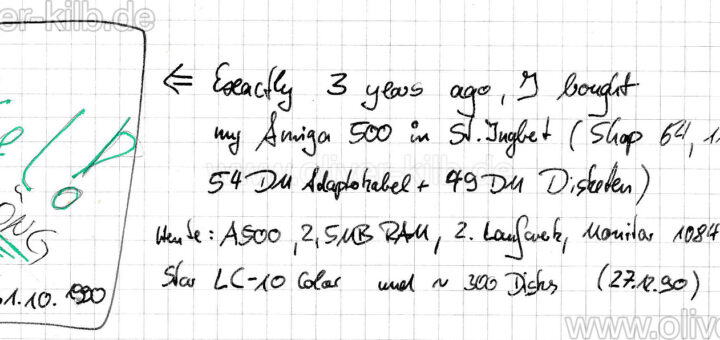 er-kilb.de
⇐ Exactly 3 years ago, I bought
my Amiga 500 in St. Ingbert (Shop 64, 1
54 DM Adapterkabel + 49 DM Disketten)
www.oliver-kilb.de
Heute: A500, 2,5MB RAM, 2. Laufwerk, Monitor 1084
Star LC-10 Color und ~ 300 Disks (27.12.90)
ÖNG
1.10. 1990
www.oliv